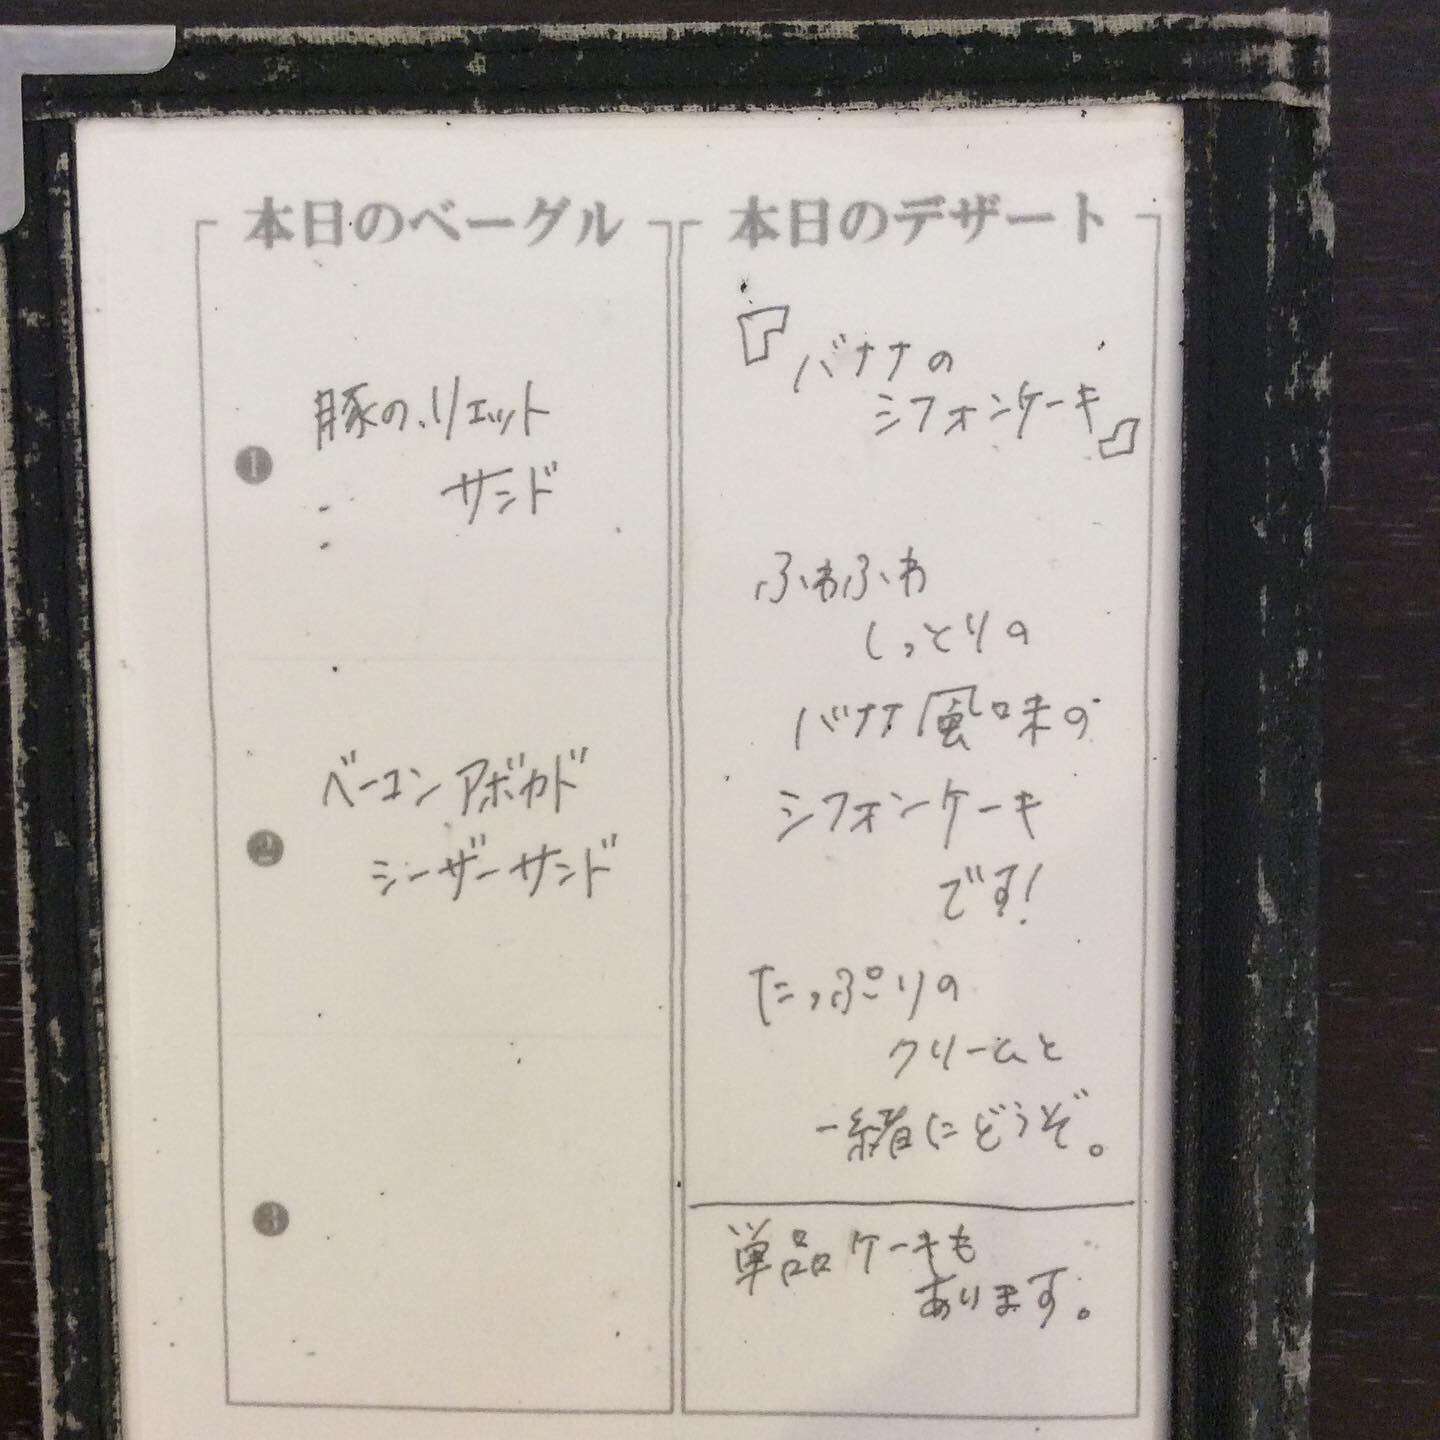 本日のベーグル
❶
豚のリエット
サンド
❷
ベーコンアボカド
シーザーサンド
❸
本日のデザート
『バナナの
シフォンケーキ』
ふわふわ
しっとりの
バナナ風味の
シフォンケーキ
です!
たっぷりの
クリームと
一緒にどうぞ。
単品ケーキも
あります。